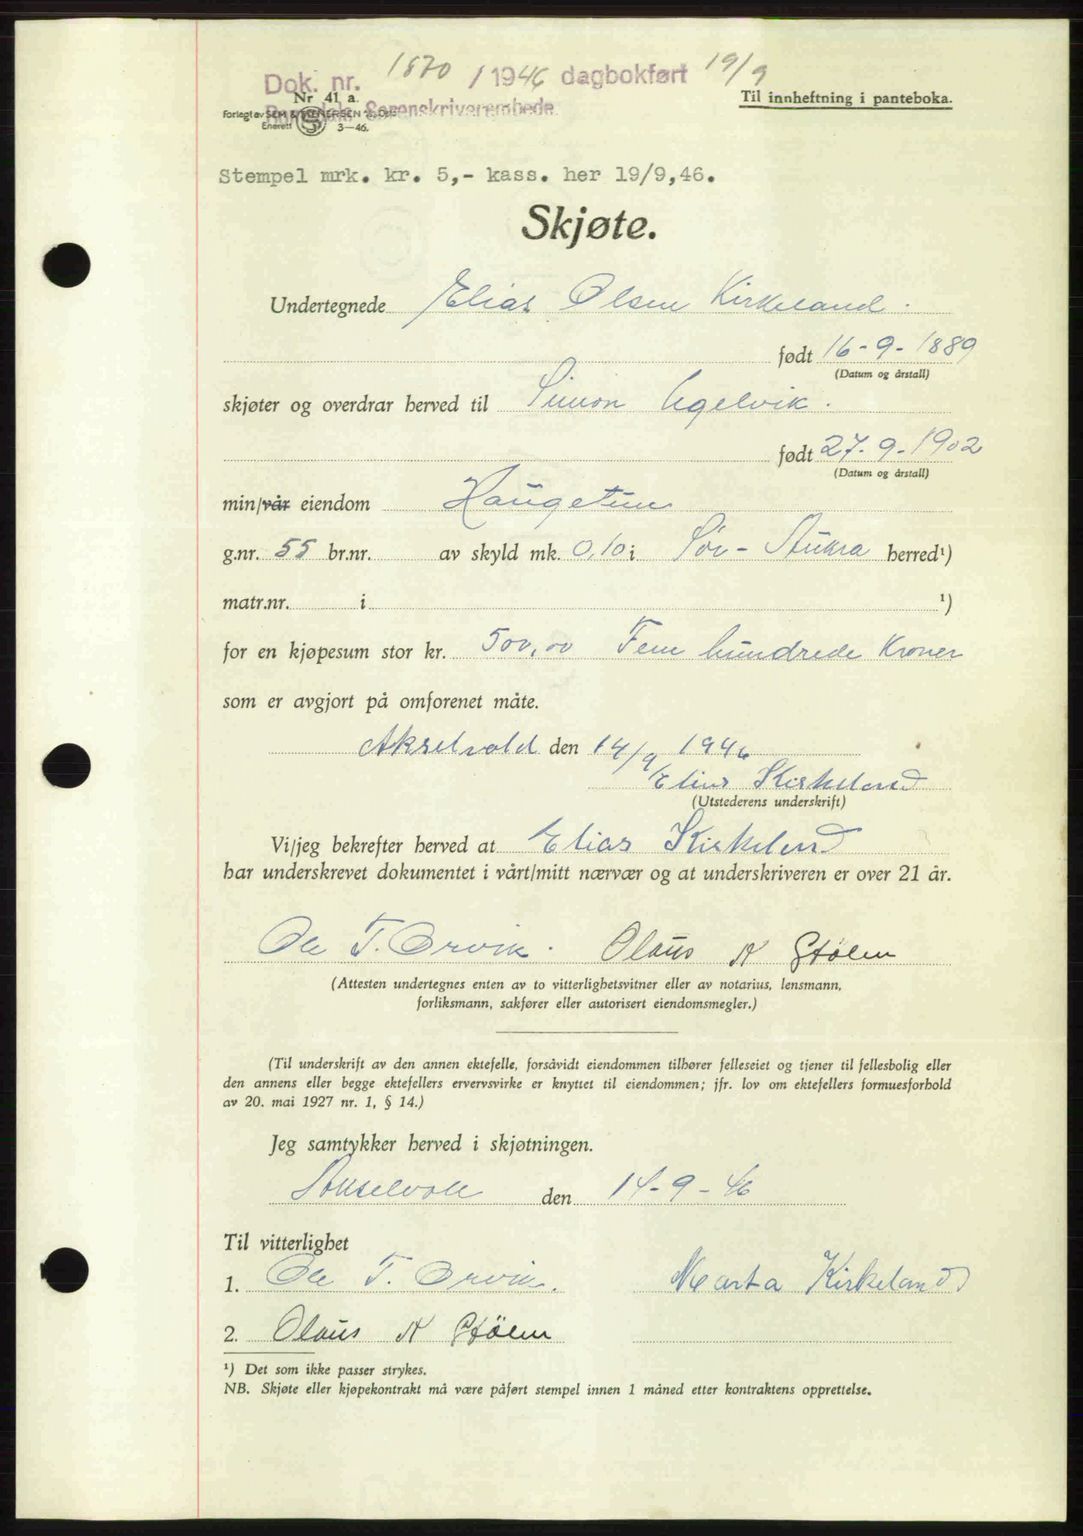 Dok. nr. 1870 / 1946 dagbokført 19/9
Nr 41 a.
Sorenskriverembede.
Til innheftning i panteboka.
Forlagt av SEM & STENERSEN A/S, Oslo
Enerett 3—46.
Stempel mrk. kr. 5,- kass. her 19/9,46.
Skjøte.
Undertegnede Elias Olsen Kirkeland.
født 16-9-1889
(Datum og årstall)
skjøter og overdrar herved til Simon Ugelvik.
født 27-9-1902
(Datum og årstall)
min/vår eiendom Haugetun
g.nr. 55 br.nr. av skyld mk. 0,10 i Sør-Aukra herred¹)
matr.nr. i ¹)
for en kjøpesum stor kr. 500,00 Fem hundrede Kroner
som er avgjort på omforenet måte.
den 14/9 1946
Elias Kirkeland
(Utstederens underskrift)
Vi/jeg bekrefter herved at Elias Kirkeland
har underskrevet dokumentet i vårt/mitt nærvær og at underskriveren er over 21 år.
Ole T. Orvik. Olaus N Stølen
(Attesten undertegnes enten av to vitterlighetsvitner eller av notarius, lensmann,
forliksmann, sakfører eller autorisert eiendomsmegler.)
(Til underskrift av den annen ektefelle, forsåvidt eiendommen tilhører felleseiet og tjener til fellesbolig eller
den annens eller begge ektefellers ervervsvirke er knyttet til eiendommen; jfr. lov om ektefellers formuesforhold
av 20. mai 1927 nr. 1, § 14.)
Jeg samtykker herved i skjøtningen.
den 14-9-46
Til vitterlighet
1. Ole T. Orvik. Marta Kirkeland
2. Olaus N Stølen
¹) Det som ikke passer strykes.
NB. Skjøte eller kjøpekontrakt må være påført stempel innen 1 måned etter kontraktens opprettelse.